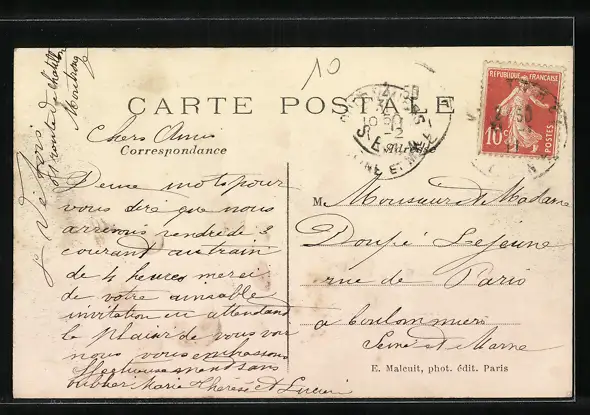 10
CARTE POSTALE
Correspondance
Adresse
REPUBLIQUE FRANÇAISE
10c
POSTES
Chers Amis
Deux mots pour
vous dire que nous
arrivons vendredi 3
courant au train
de 4 heures merci
de votre aimable
invitation en attendant
le plaisir de vous voir
nous vous embrassons
affectueusement tous
Marie Thérèse et Lucien
M Monsieur et Madame
Doupé Lejeune
rue de Paris
a Coulommiers
Seine et Marne
E. Maleuit, phot. édit. Paris
route de Chatillon
Montrouge